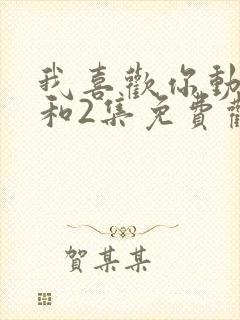 我喜歡你動
和2集免費觀
賀某某